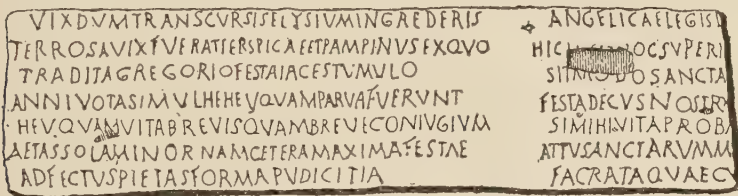 VIXDVMTRANSCVRSISELYSIVMINGREDERIS
TERROSAVIXFVERATTERSPICAEETPAMPINVSEXQVO
TRADITAGREGORIOFESTAIACESTVMVLO
ANNIVOTASIMVLHEHEVQVAMPARVAFVERVNT
HEVQVAMVITABREVISQVAMBREVECONIVGIVM
AETASSOLAMINORNAMCETERAMAXIMAFESTAE
ADFECTVSPIETASFORMAPVDICITIA
ANGELICAELEGIS
HIC OCSVPERI
SANCTA
FESTADECVSNOS
SIMIHIVITAPROBA
ATTVSANCTARVMM
FACRATAQVAEC